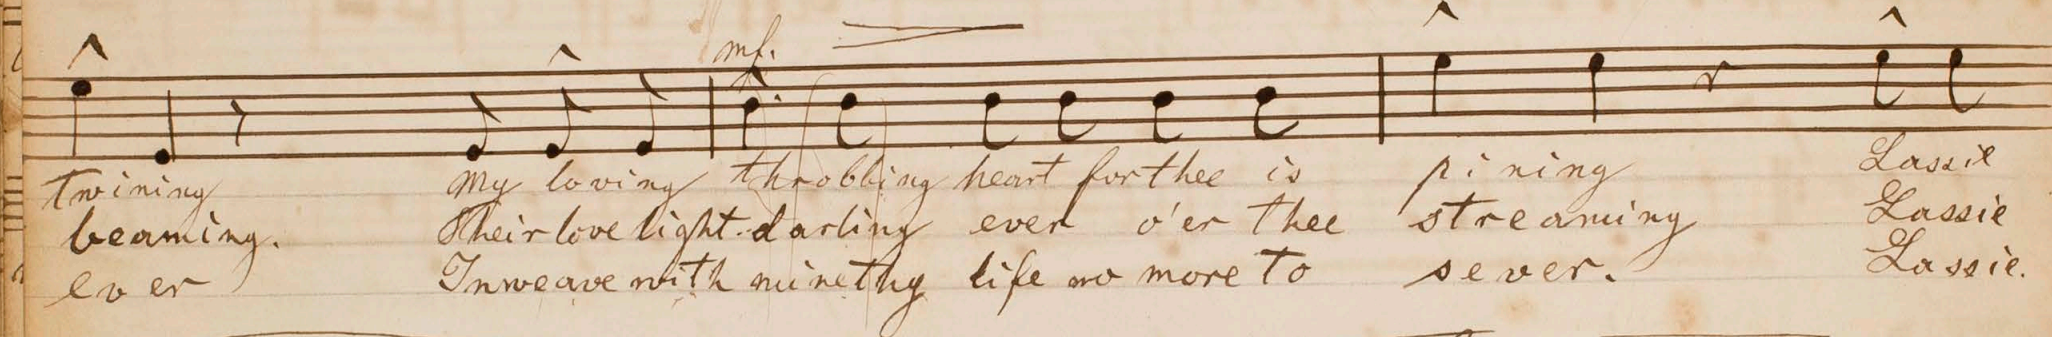 mf.
twining My loving throbbing heart for thee is pining Lassie
beaming. Their love light darling ever o'er thee streaming Lassie
ever Inweave with mine thy life no more to sever. Lassie.